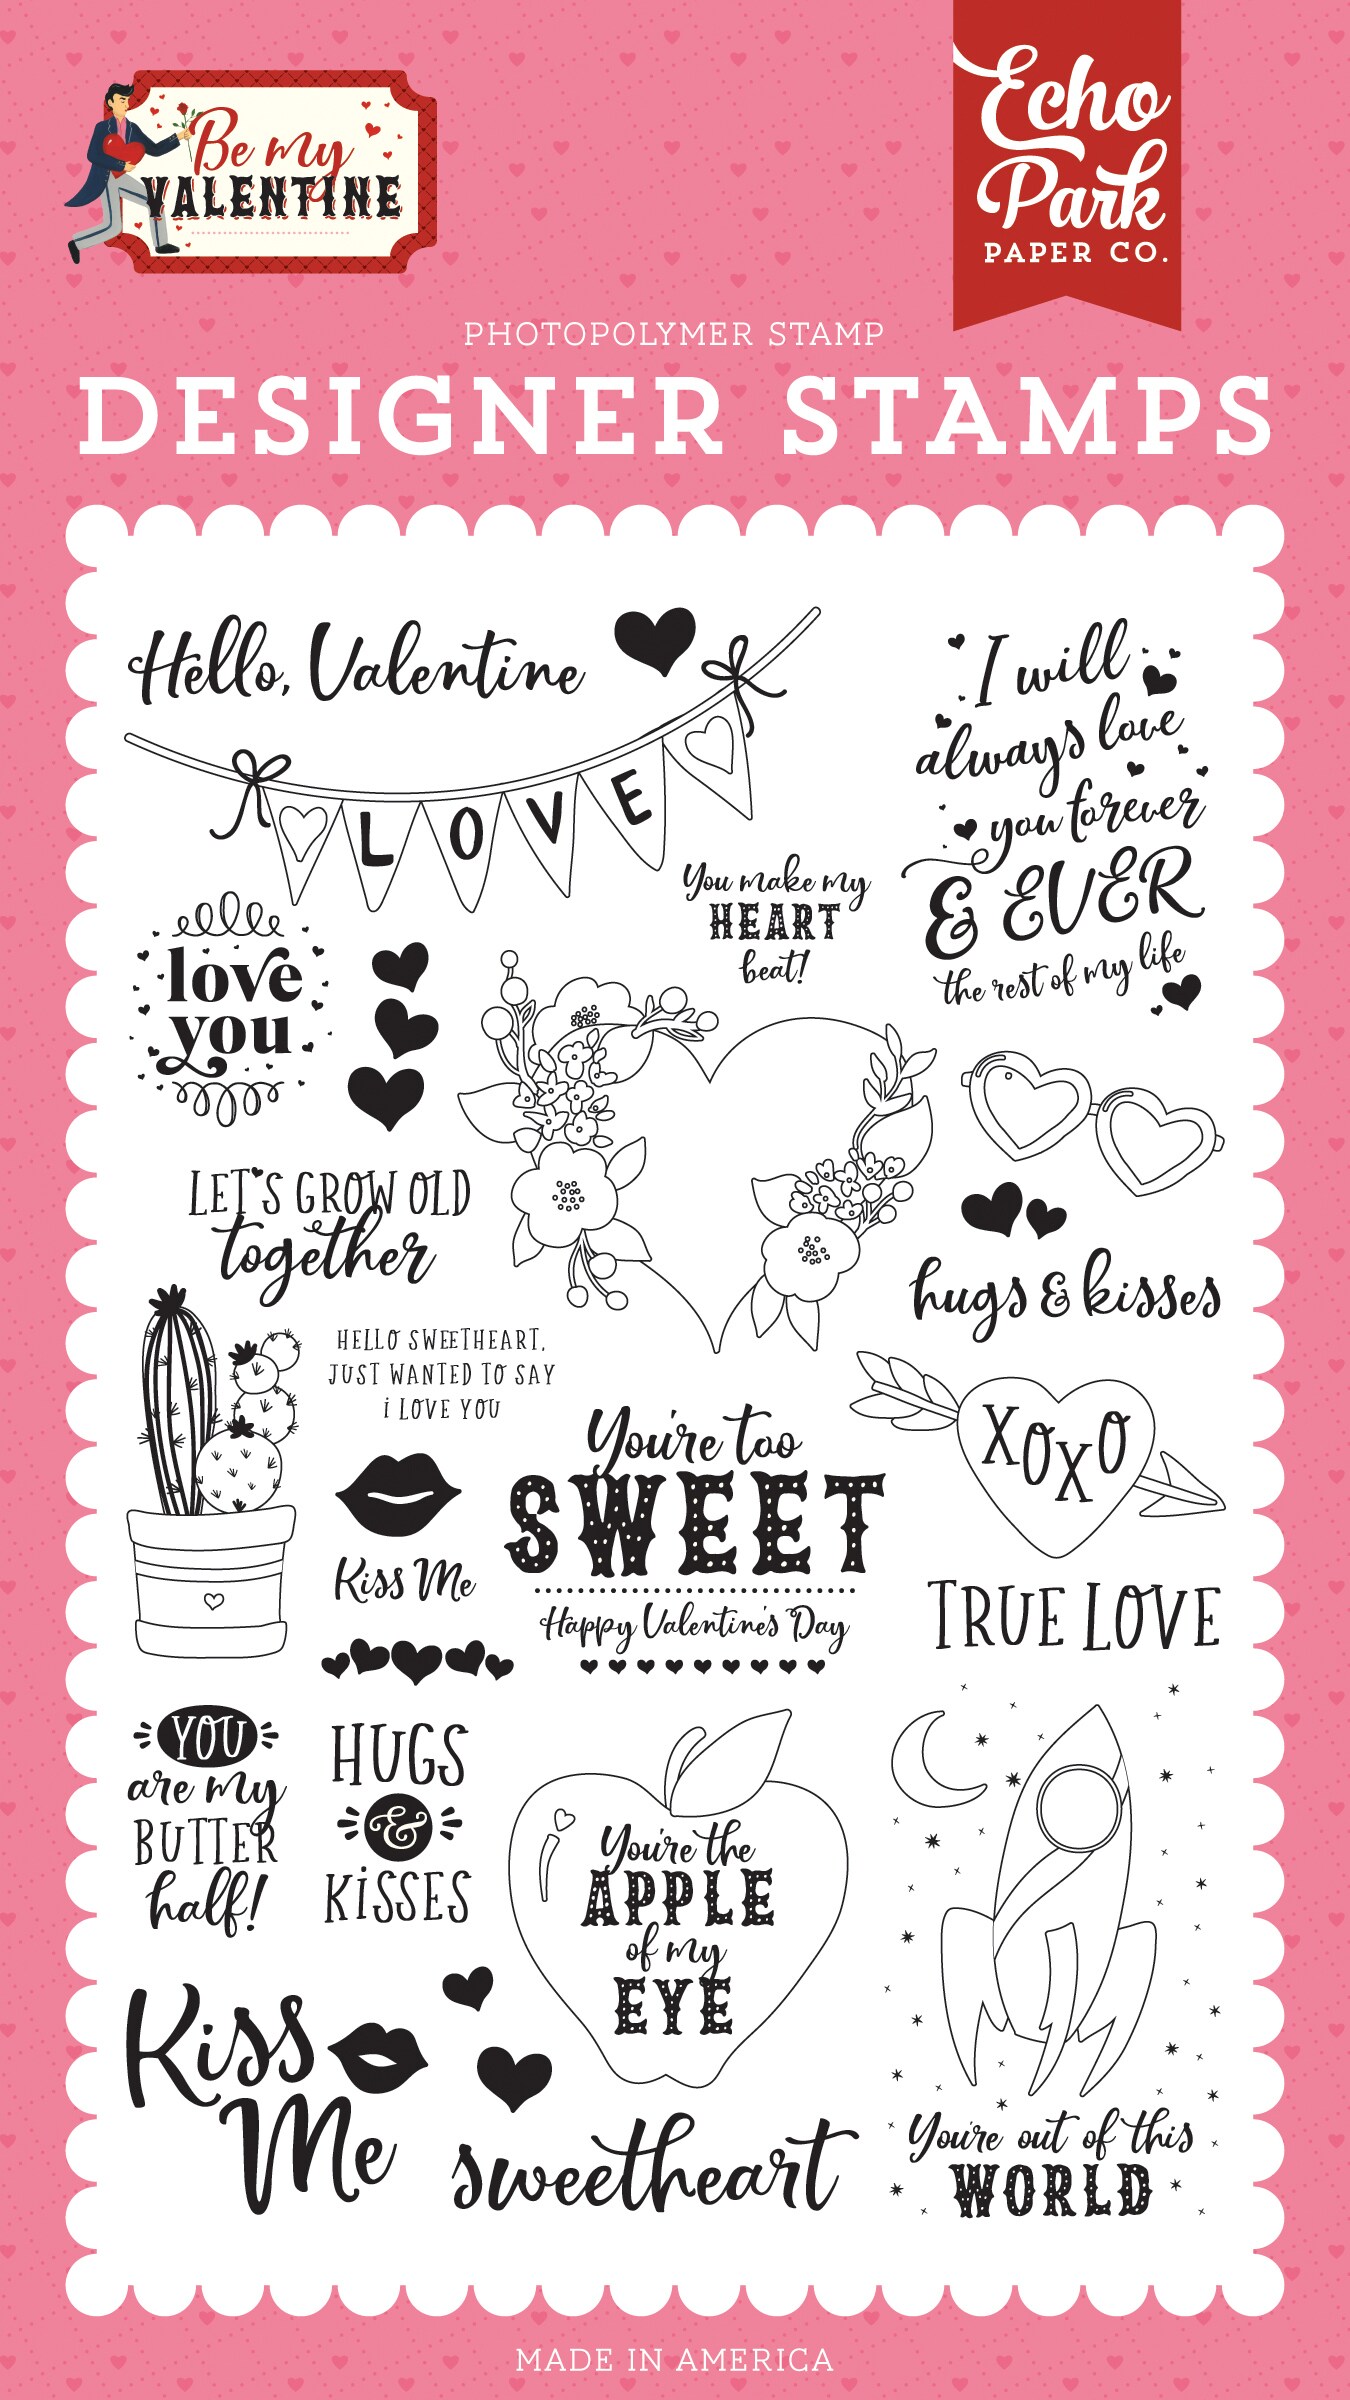 Be my
VALENTINE
Echo
Park
PAPER CO.
PHOTOPOLYMER STAMP
DESIGNER STAMPS
Hello, Valentine
LOVE
I will
always love
you forever
& EVER
the rest of my life
You make my
HEART
beat!
love
you
LET'S GROW OLD
together
hugs & kisses
HELLO SWEETHEART,
JUST WANTED TO SAY
i LOVE YOU
XOXO
You're too
SWEET
Happy Valentine's Day
Kiss Me
TRUE LOVE
YOU
are my
BUTTER
half!
HUGS
&
KiSSES
You're the
APPLE
of my
EYE
Kiss
Me
sweetheart
You're out of this
WORLD
MADE IN AMERICA